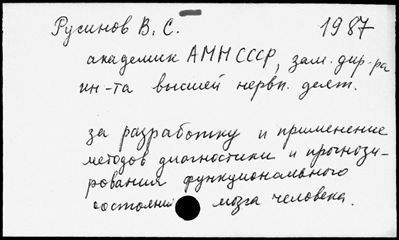 Русинов В. С. 1987
академик АМН СССР, зам. дир-ра
ин-та высшей нервн. деят.
за разработку и применение
методов диагностики и прогнози-
рования функционального
состояни мозга человека.